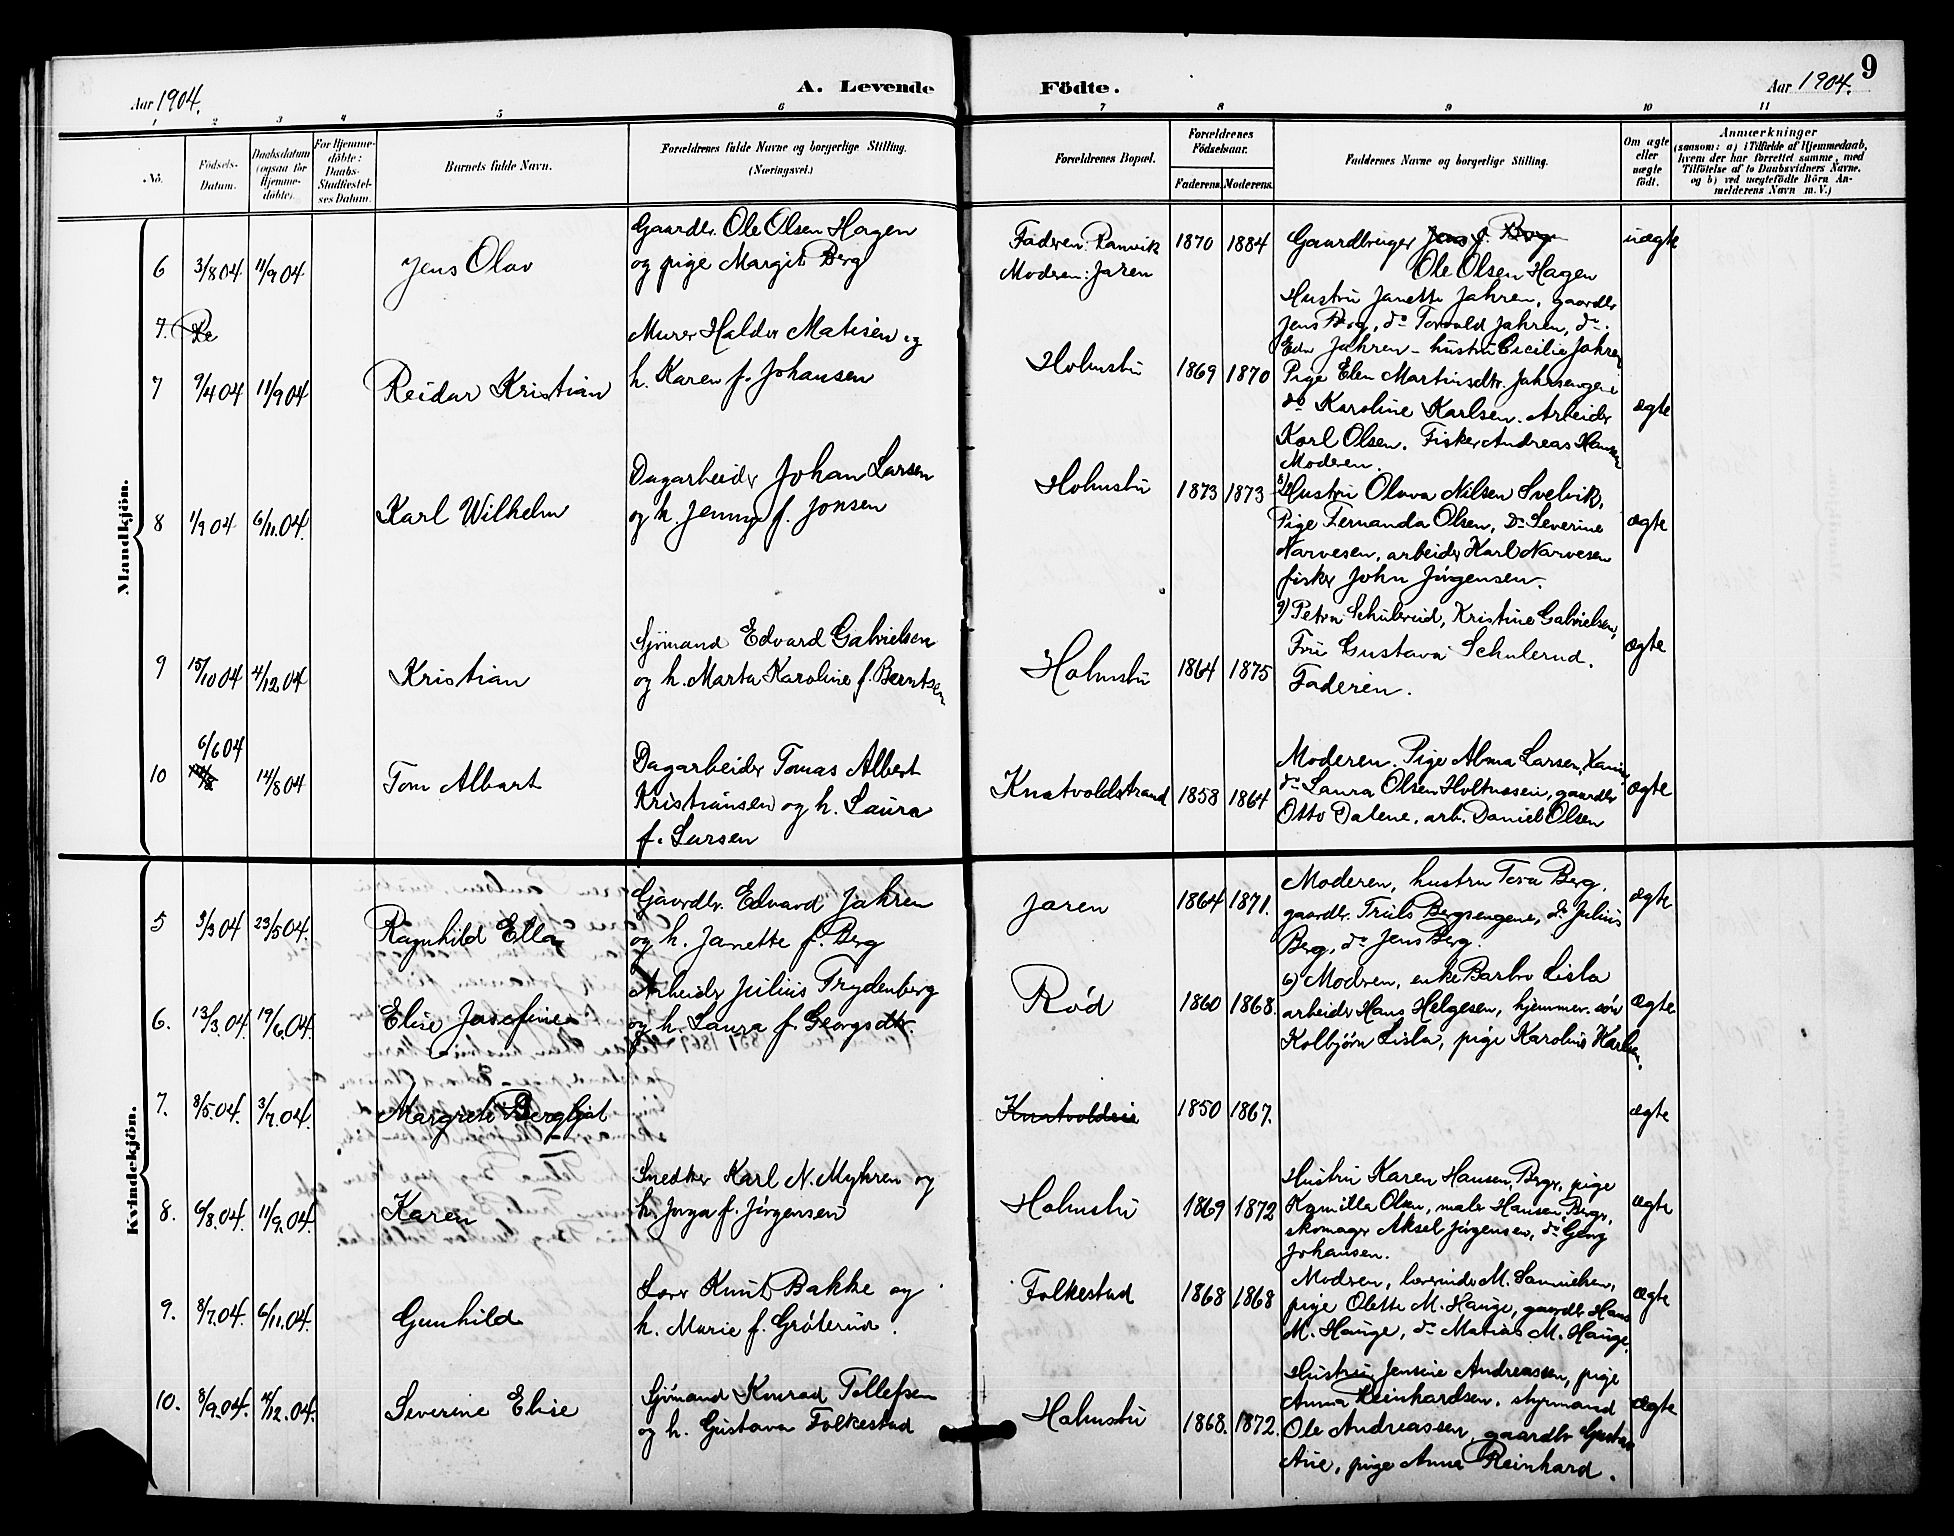 Aar 1904.
A. Levende Födte.
Aar 1904.
9
1 2 3 4 5 6 7 8 9 10 11
No.
Födsels-
Datum.
Daabsdatum
(ogsaa for
Hjemme-
döbte).
For Hjemme-
döbte:
Daabs-
Stadfæstel-
ses Datum.
Barnets fulde Navn.
Forældrenes fulde Navne og borgerlige Stilling.
(Næringsvei.)
Forældrenes Bopæl.
Forældrenes
Födselsaar.
Faderens. Moderens.
Faddernes Navne og borgerlige Stilling.
Om ægte
eller
uægte
födt.
Anmærkninger
(saasom: a) i Tilfælde af Hjemmedaab,
hvem der har forrettet samme, med
Tilföielse af to Daabsvidners Navne,
og b) ved uægtefödte Börn An-
melderens Navn m. V.)
Mandkjön.
6 3/8 04 11/9 04 Jens Olav
Gaardbr. Ole Olsen Hagen
og pige Margit Berg
Faderen: Ramvik
Modren: Jaren
1870 1884
Gaardbruger Jens J. Berg
Ole Olsen Hagen
Hustru Janette Jahren, gaardbr
Jens Berg, do Torvald Jahren, do
Edv Jahren - hustru Cecilie Jahren
uægte
7. Re
7 9/4 04 11/9 04 Reidar Kristian
Murer Haldor Matisen og
h. Karen f. Johansen
Holmsbu 1869 1870
Pige Elen Martinsdtr. Jahrsengene
do Karoline Karlsen. Arbeider
Karl Olsen. Fisker Andreas Hansen
Moderen.
ægte
8 1/9 04 6/11 04. Karl Wilhelm
Dagarbeider Johan Larsen
og h. Jenny f. Jonsen
Holmsbu 1873 1873
8) Hustru Olava Nilsen Svelvik,
Pige Fernanda Olsen, Do Severine
Narvesen, arbeider Karl Narvesen
fisker John Jörgensen.
ægte
9 15/10 04 4/12 04 Kristian
Sjömand Edvard Gabrielsen
og h. Marta Karoline f. Berntsen
Holmsbu 1864 1875
9) Petra Schulerud, Kristine Gabrielsen,
Fru Gustava Schulerud.
Faderen.
ægte
10 6/6 04 14/8 04 Tom Albart
Dagarbeider Tomas Albert
Kristiansen og h. Laura
f. Larsen
Knatvoldstrand 1858 1864
Moderen. Pige Alma Larsen,
do Laura Olsen Holtnesen, gaardbr
Otto Dalene, arb. Daniel Olsen
ægte
Kvindekjön.
5 3/3 04 23/5 04. Ragnhild Ella
Gaardbr. Edvard Jahren
og h. Janette f. Berg
Jaren 1864 1871.
Moderen, hustru Tora Berg.
gaardbr. Truls Bergsengene, do Julius
Berg, do Jens Berg.
ægte
6. 13/3. 04 19/6. 04. Elise Josefine
Arbeider Julius Frydenberg
og h. Laura f. Georgsdtr.
Rød 1860 1868.
6) Modren, enke Barbro Lisla
arbeider Hans Helgesen, hjemmev. sön
Kolbjørn Lisla, pige Karolius Karlsen.
ægte
7. 8/5. 04. 3/7. 04. Margrete Bergljot
Knatvoldeie 1850 1867.
ægte
8. 6/8. 04. 11/9. 04. Karen
Snedker Karl N. Myhren og
h. Inga f. Jørgensen
Holmsbu 1869 1872
Hustru Karen Hansen, Berger, pige
Kamilla Olsen, maler Hansen, Berger,
skomager Aksel Jörgensen, do Georg
Johansen.
ægte
9. 8/7. 04. 6/11. 04. Gunhild
Lærer Knut Bakke og
h. Marie f. Grøterud.
Folkestad 1868 1868
Modren, lærerinde M. Samuelsen,
pige Olette M. Hauge, gaardbr Hans
M. Hauge, do Matias M. Hauge.
ægte
10. 8/9. 04. 4/12. 04. Severine Elise
Sjömand Konrad Tollefsen
og h. Gustava Folkestad
Holmsbu 1868. 1872.
Hustru Jensine Andreassen, pige
Anna Reinhardsen. styrmand
Ole Andreassen, gaardbr Gustav
Aue, pige Anna Reinhard.
ægte